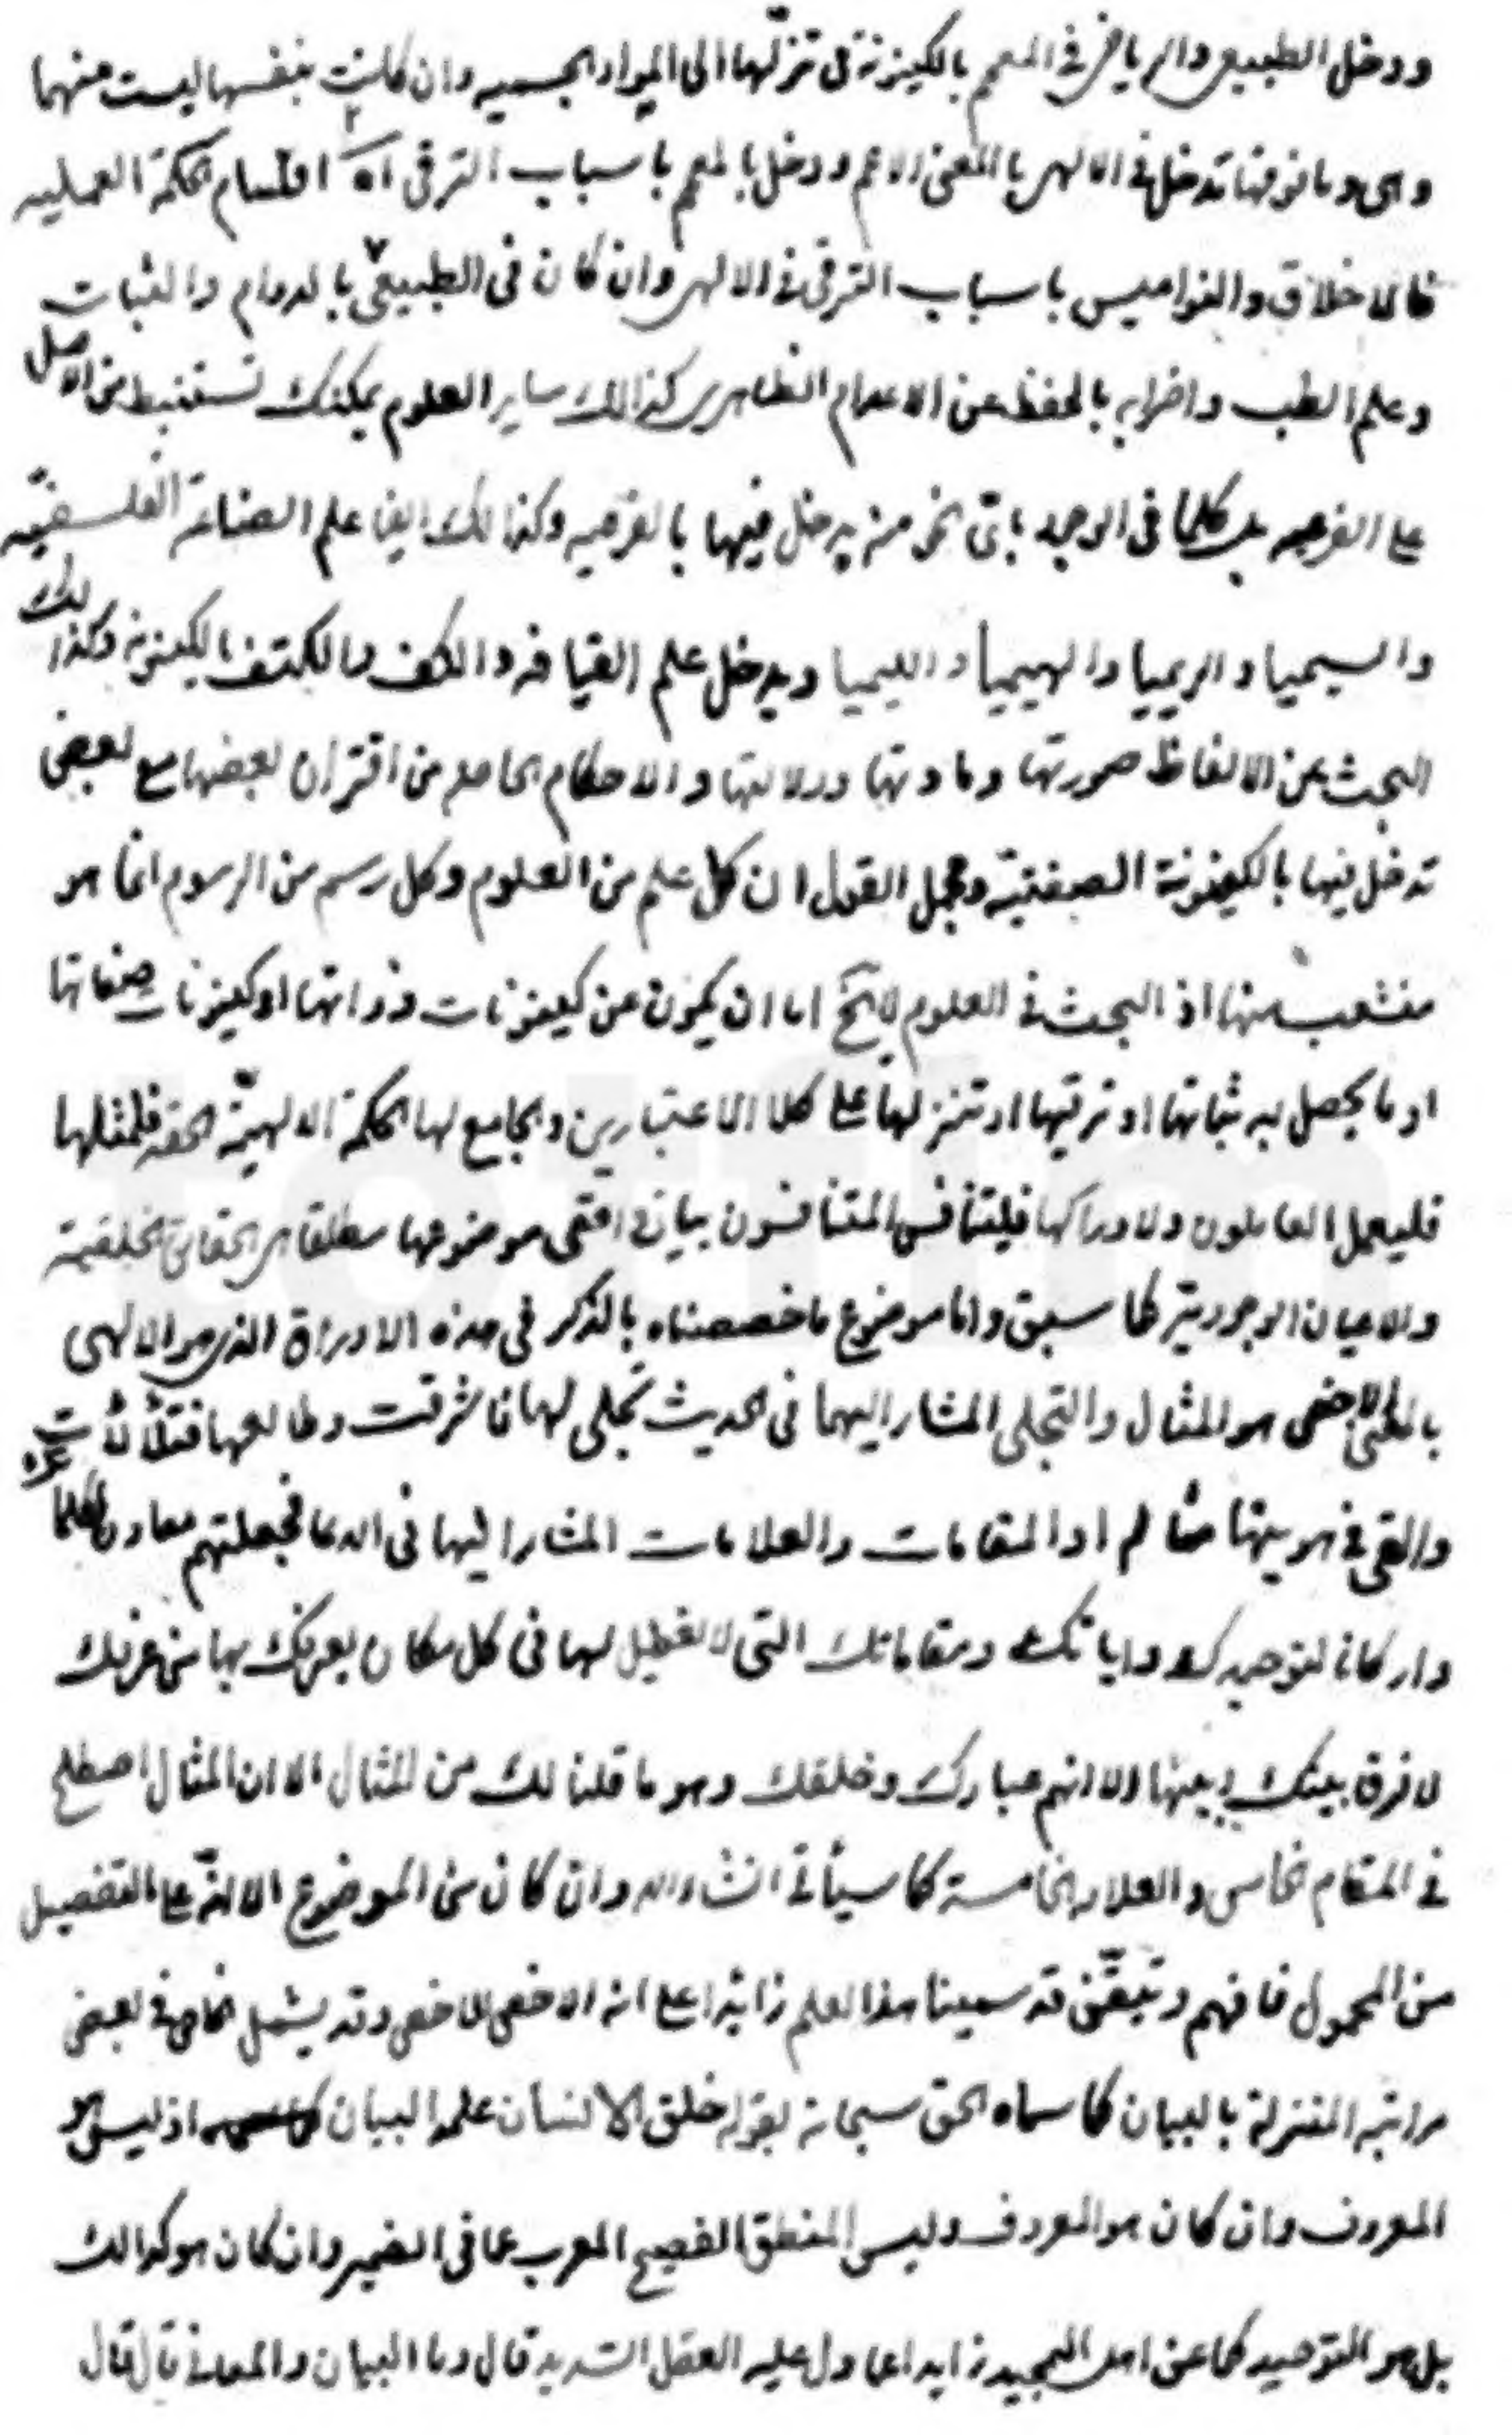 ودخل الطبيعي والرياضي في المعم بالكينونة في تنزلها الى المواد الجسميه وان كانت بنفسها ليست منهما
وهى وما فوقها تدخل في الالهى بالمعنى الاعم ودخل بالمعم باسباب الترقى اه اقسام الحكمة العمليه
فالاخلاق والنواميس باسباب الترقى في الالهى وان كان فى الطبيعى بالدوام والثبات
وعلم الطب واضرابه بالحفظ عن الاعدام الظاهرى كذالك ساير العلوم يمكنك تستنبط من الاصل
على الفرعيه بل كلما فى الوجود باى نحو منه يدخل فيها بالفرعيه وكذالك ايضا علم الصناعة الفلسفيّه
والسيميا والريميا والهيميا والليميا ويدخل علم القيافه والكف والكتف بالكينونة وكذالك
البحث عن الالفاظ صورتها ومادتها ودلالتها والاحكام الحاصله من اقتران بعضها مع بعض
تدخل فيها بالكينونة الصفتيّه ومجمل القول ان كل علم من العلوم وكل رسم من الرسوم انما هو
منشعب منها اذ البحث في العلوم لايخ اما ان يكون عن كينونات ذواتها او كينونات صفاتها
او ما يحصل به ثباتها او ترقيها او تنزلها على كلا الاعتبارين والجامع لها الحكمة الالهيّة الحقه فلمثلها
فليعمل العاملون ولادراكها فليتنافس المتنافسون بيان في افقى موضوعها مطلقا هى الحقايق الخلقية
والاعيان الوجودية كما سبق واما موضوع ما خصصناه بالذكر فى هذه الاوراق الذى هو الالهى
بالمعنى الاخص هو المثال والتجلى المشار اليهما فى الحديث تجلى لها فاشرقت وطالعها فتلألأت
والقى في هويتها مثاله او المقامات والعلامات المشار اليها فى الدعا فجعلتهم معادن لكلماتك
واركانا لتوحيدك واياتك ومقاماتك التى لا تعطيل لها فى كل مكان يعرفك بها من عرفك
لا فرق بينك وبينها الا انهم عبادك وخلقك وهو ما قلنا لك من المثال الا ان المثال اصطلح
في المقام الخامس والعلامه الخامسة كما سيأتي انشاء الله وان كان من الموضوع الا انه على التفصيل
من المحمول فافهم وتيقّن قد سمينا هذا العلم زائدا على انه الاخص الاخص وقد يشمل الخاص في بعض
مراتبه المتنزلة بالبيان كما سماه الحق سبحانه بقوله خلق الانسان علمه البيان اذ ليس هو
المعروف وان كان هو المعروف وليس المنطق الفصيح المعرب عما فى الضمير وان كان هو كذالك
بل هو التوحيد كما عن اهل التمجيد زايدا عما دل عليه العقل السديد قال وما البيان والمعانى قال قال